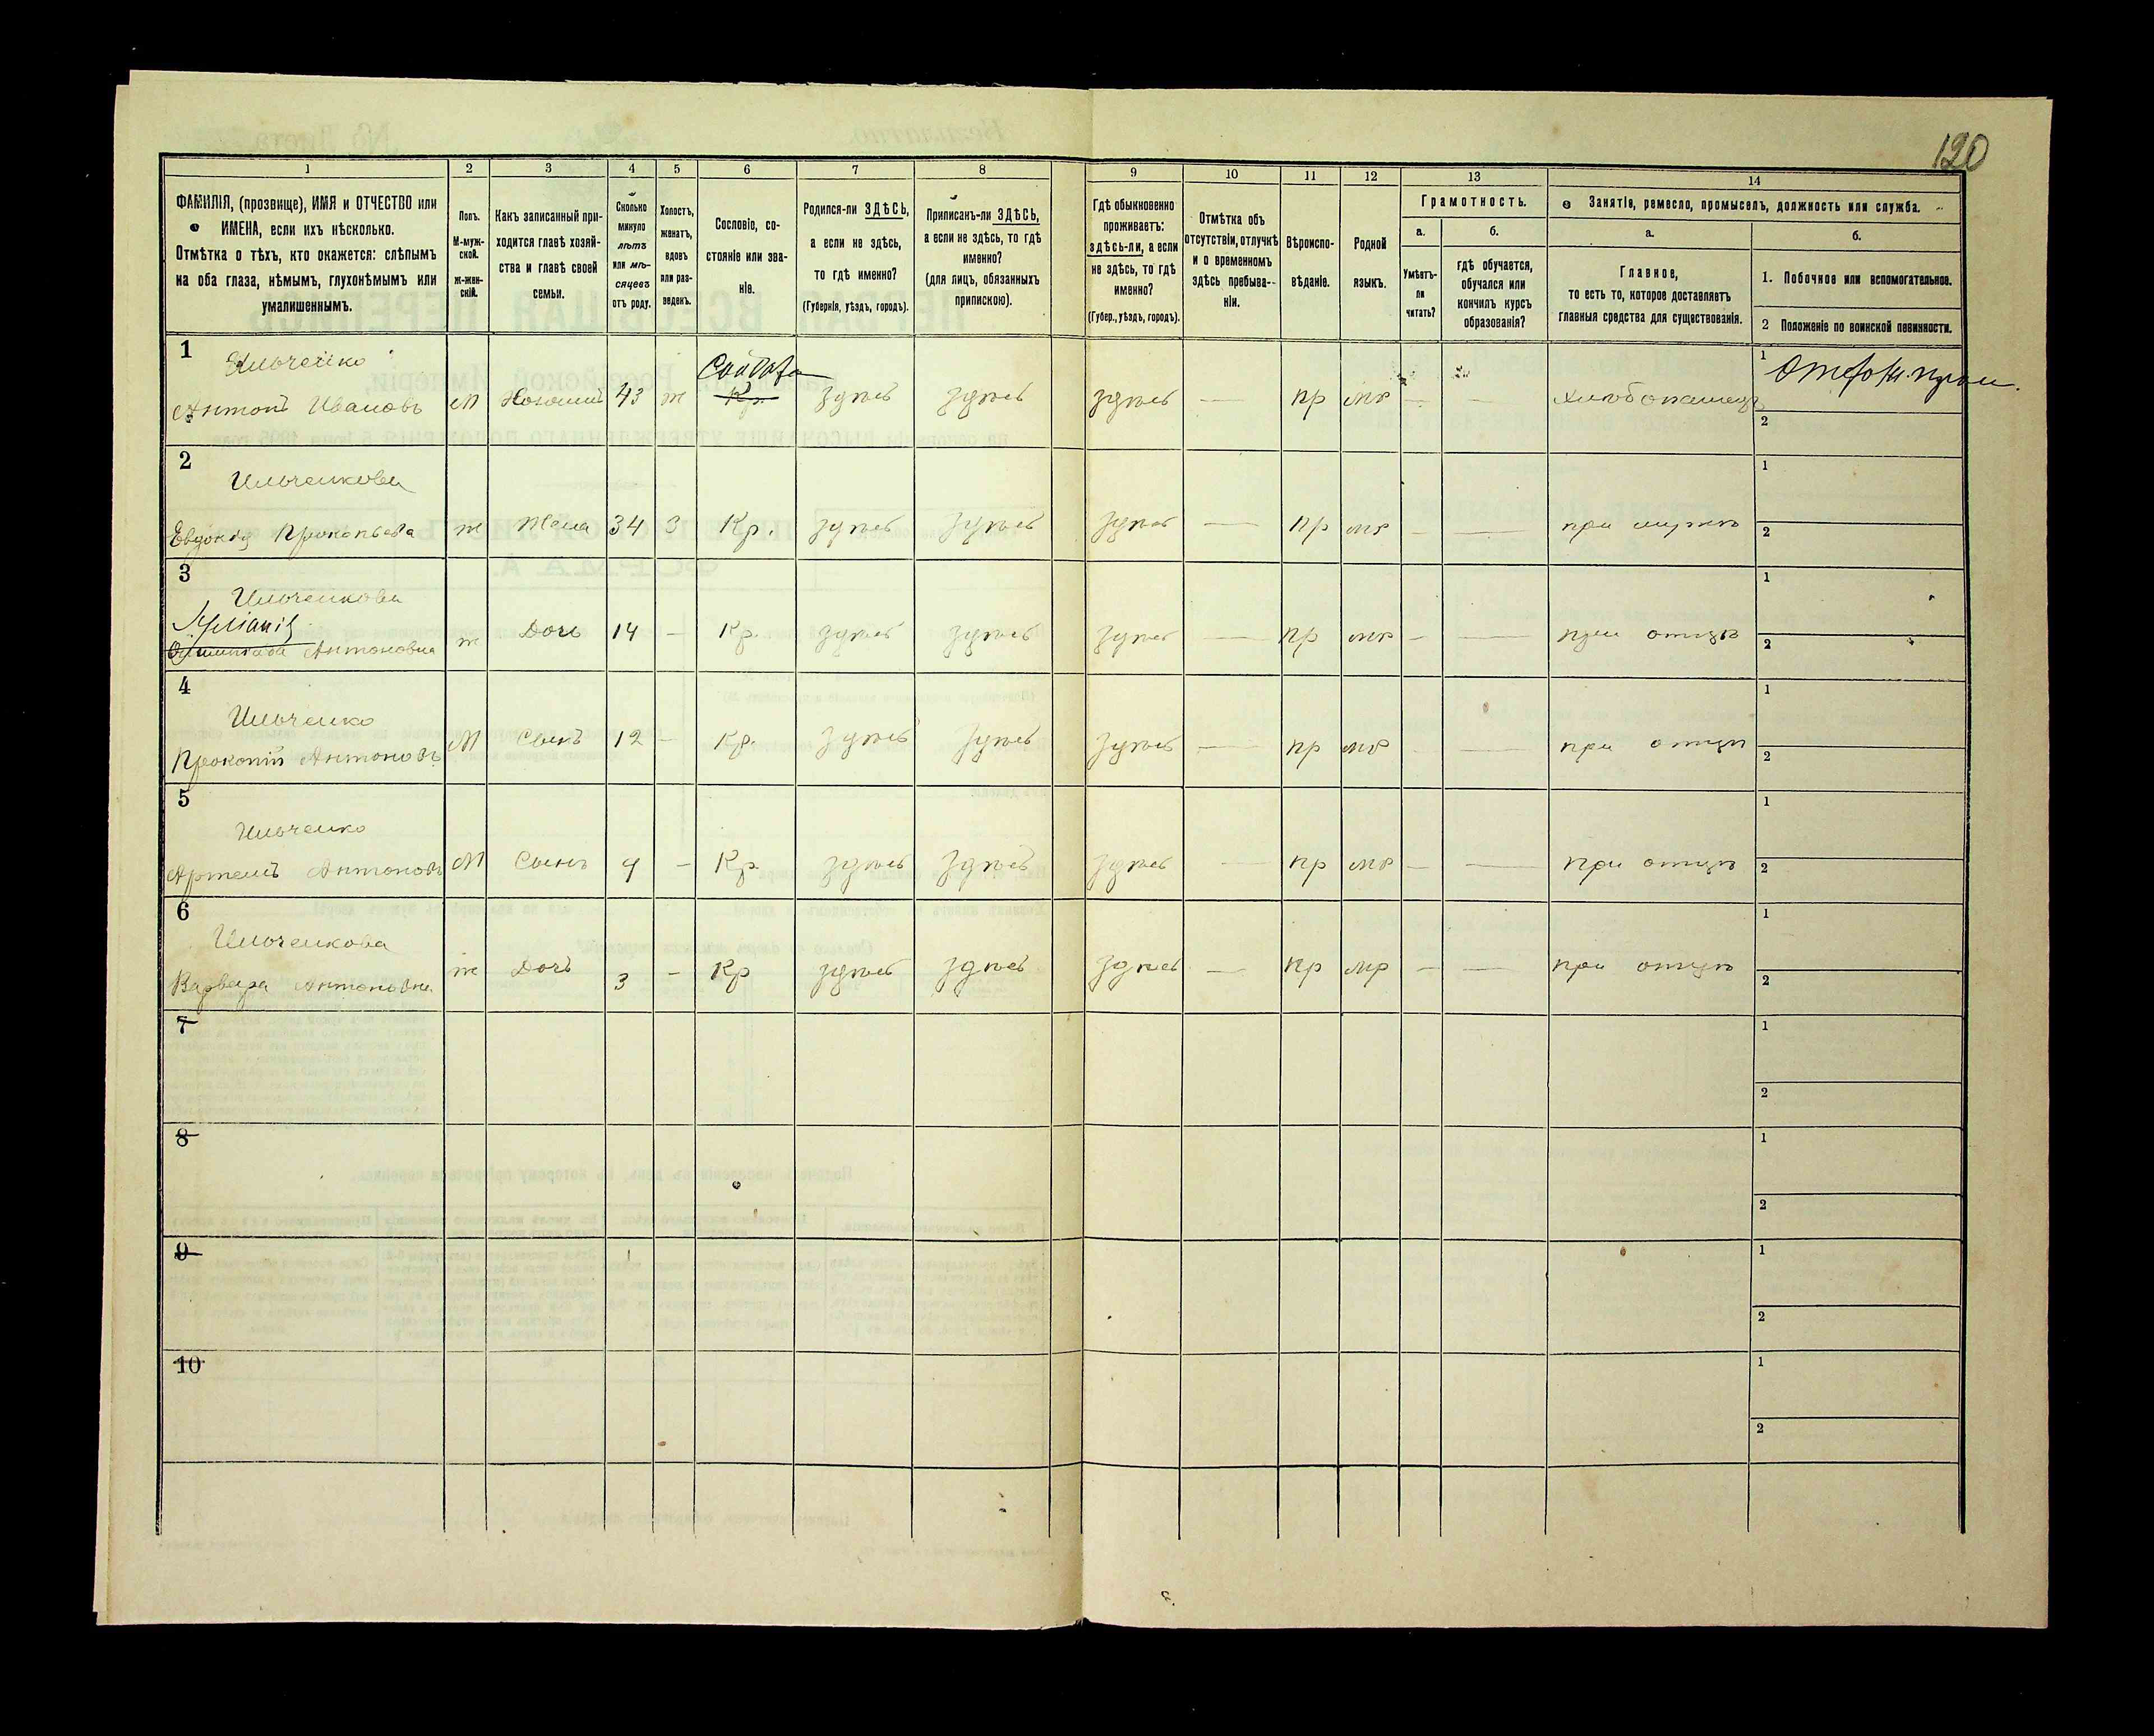 120
1
2
3
4
5
6
7
8
9
10
11
12
13
14
ФАМИЛІЯ, (прозвище), ИМЯ и ОТЧЕСТВО или
ИМЕНА, если ихъ нѣсколько.
Отмѣтка о тѣхъ, кто окажется: слѣпымъ
на оба глаза, нѣмымъ, глухонѣмымъ или
умалишеннымъ.
Полъ.
М-муж-
ской.
ж-жен-
скій.
Какъ записанный при-
ходится главѣ хозяй-
ства и главѣ своей
семьи.
Сколько
минуло
лѣтъ
или мѣ-
сяцевъ
отъ роду.
Холостъ,
женатъ,
вдовъ
или раз-
веденъ.
Сословіе, со-
стояніе или зва-
ніе.
Родился-ли ЗДѢСЬ,
а если не здѣсь,
то гдѣ именно?
(Губернія, уѣздъ, городъ).
Приписанъ-ли ЗДѢСЬ,
а если не здѣсь, то гдѣ
именно?
(для лицъ, обязанныхъ
припискою).
Гдѣ обыкновенно
проживаетъ:
здѣсь-ли, а если
не здѣсь, то гдѣ
именно?
(Губер., уѣздъ, городъ).
Отмѣтка объ
отсутствіи, отлучкѣ
и о временномъ
здѣсь пребыва-
ніи.
Вѣроиспо-
вѣданіе.
Родной
языкъ.
Грамотность.
а.
Умѣетъ-
ли
читать?
б.
гдѣ обучается,
обучался или
кончилъ курсъ
образованія?
Занятіе, ремесло, промыселъ, должность или служба.
а.
Главное,
то есть то, которое доставляетъ
главныя средства для существованія.
б.
1. Побочное или вспомогательное.
2 Положеніе по воинской повинности.
1
Ильченко
Антонъ Ивановъ М Хозяинъ 43 ж Кр. здѣсь здѣсь здѣсь — пр мр — — хлѣбопашецъ
1
2
2
Ильченкова
Евдокія Прокопьева ж Жена 34 З Кр. здѣсь здѣсь здѣсь — пр мр — — при мужѣ
1
2
3
Ильченкова
Антоновна ж Дочь 14 — Кр. здѣсь здѣсь здѣсь — пр мр — — при отцѣ
1
2
4
Ильченко
Прокопій Антоновъ М Сынъ 12 — Кр. здѣсь здѣсь здѣсь — пр мр — при отцѣ
1
2
5
Ильченко
Артемъ Антоновъ М Сынъ — Кр. здѣсь здѣсь здѣсь — пр мр — — при отцѣ
1
2
6
Ильченкова
Варвара Антоновна ж Дочь 3 — Кр здѣсь здѣсь здѣсь — пр мр — — при отцѣ
1
2
7
1
2
8
1
2
9
1
2
10
1
2